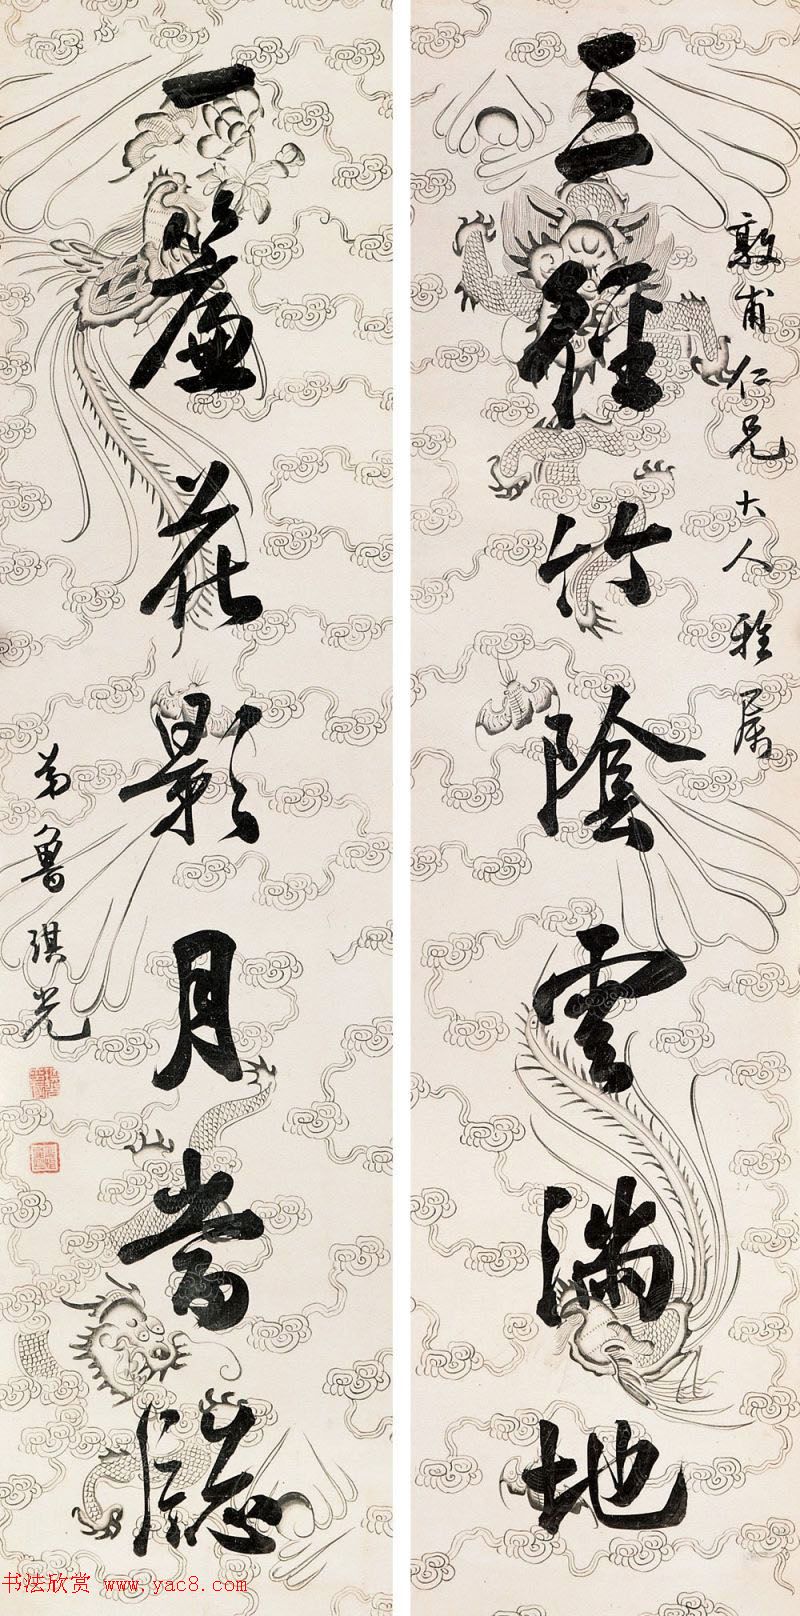 敦甫仁兄大人雅属
三径竹陰雲滿地
一簾花影月當牕
弟魯琪光
书法欣赏 www.yac8.com